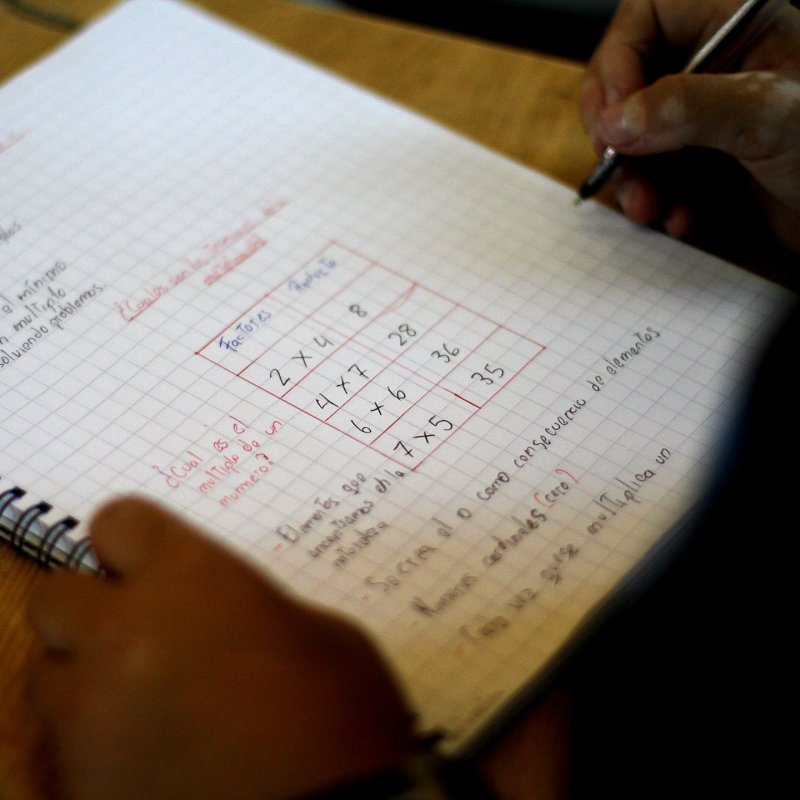 el mínimo
multiplo
solviendo problemas.
¿Cuales son los
Factores Producto
2 x 4 8
4 x 7 28
6 x 6 36
7 x 5 35
¿Cual es el
multiplo de un
numero?
- Elementos que
encontramos en la
naturaleza
- Se crea el 0 como consecuencia de elementos
- Numeros cardinales (cero)
- Cada vez que se multiplica un